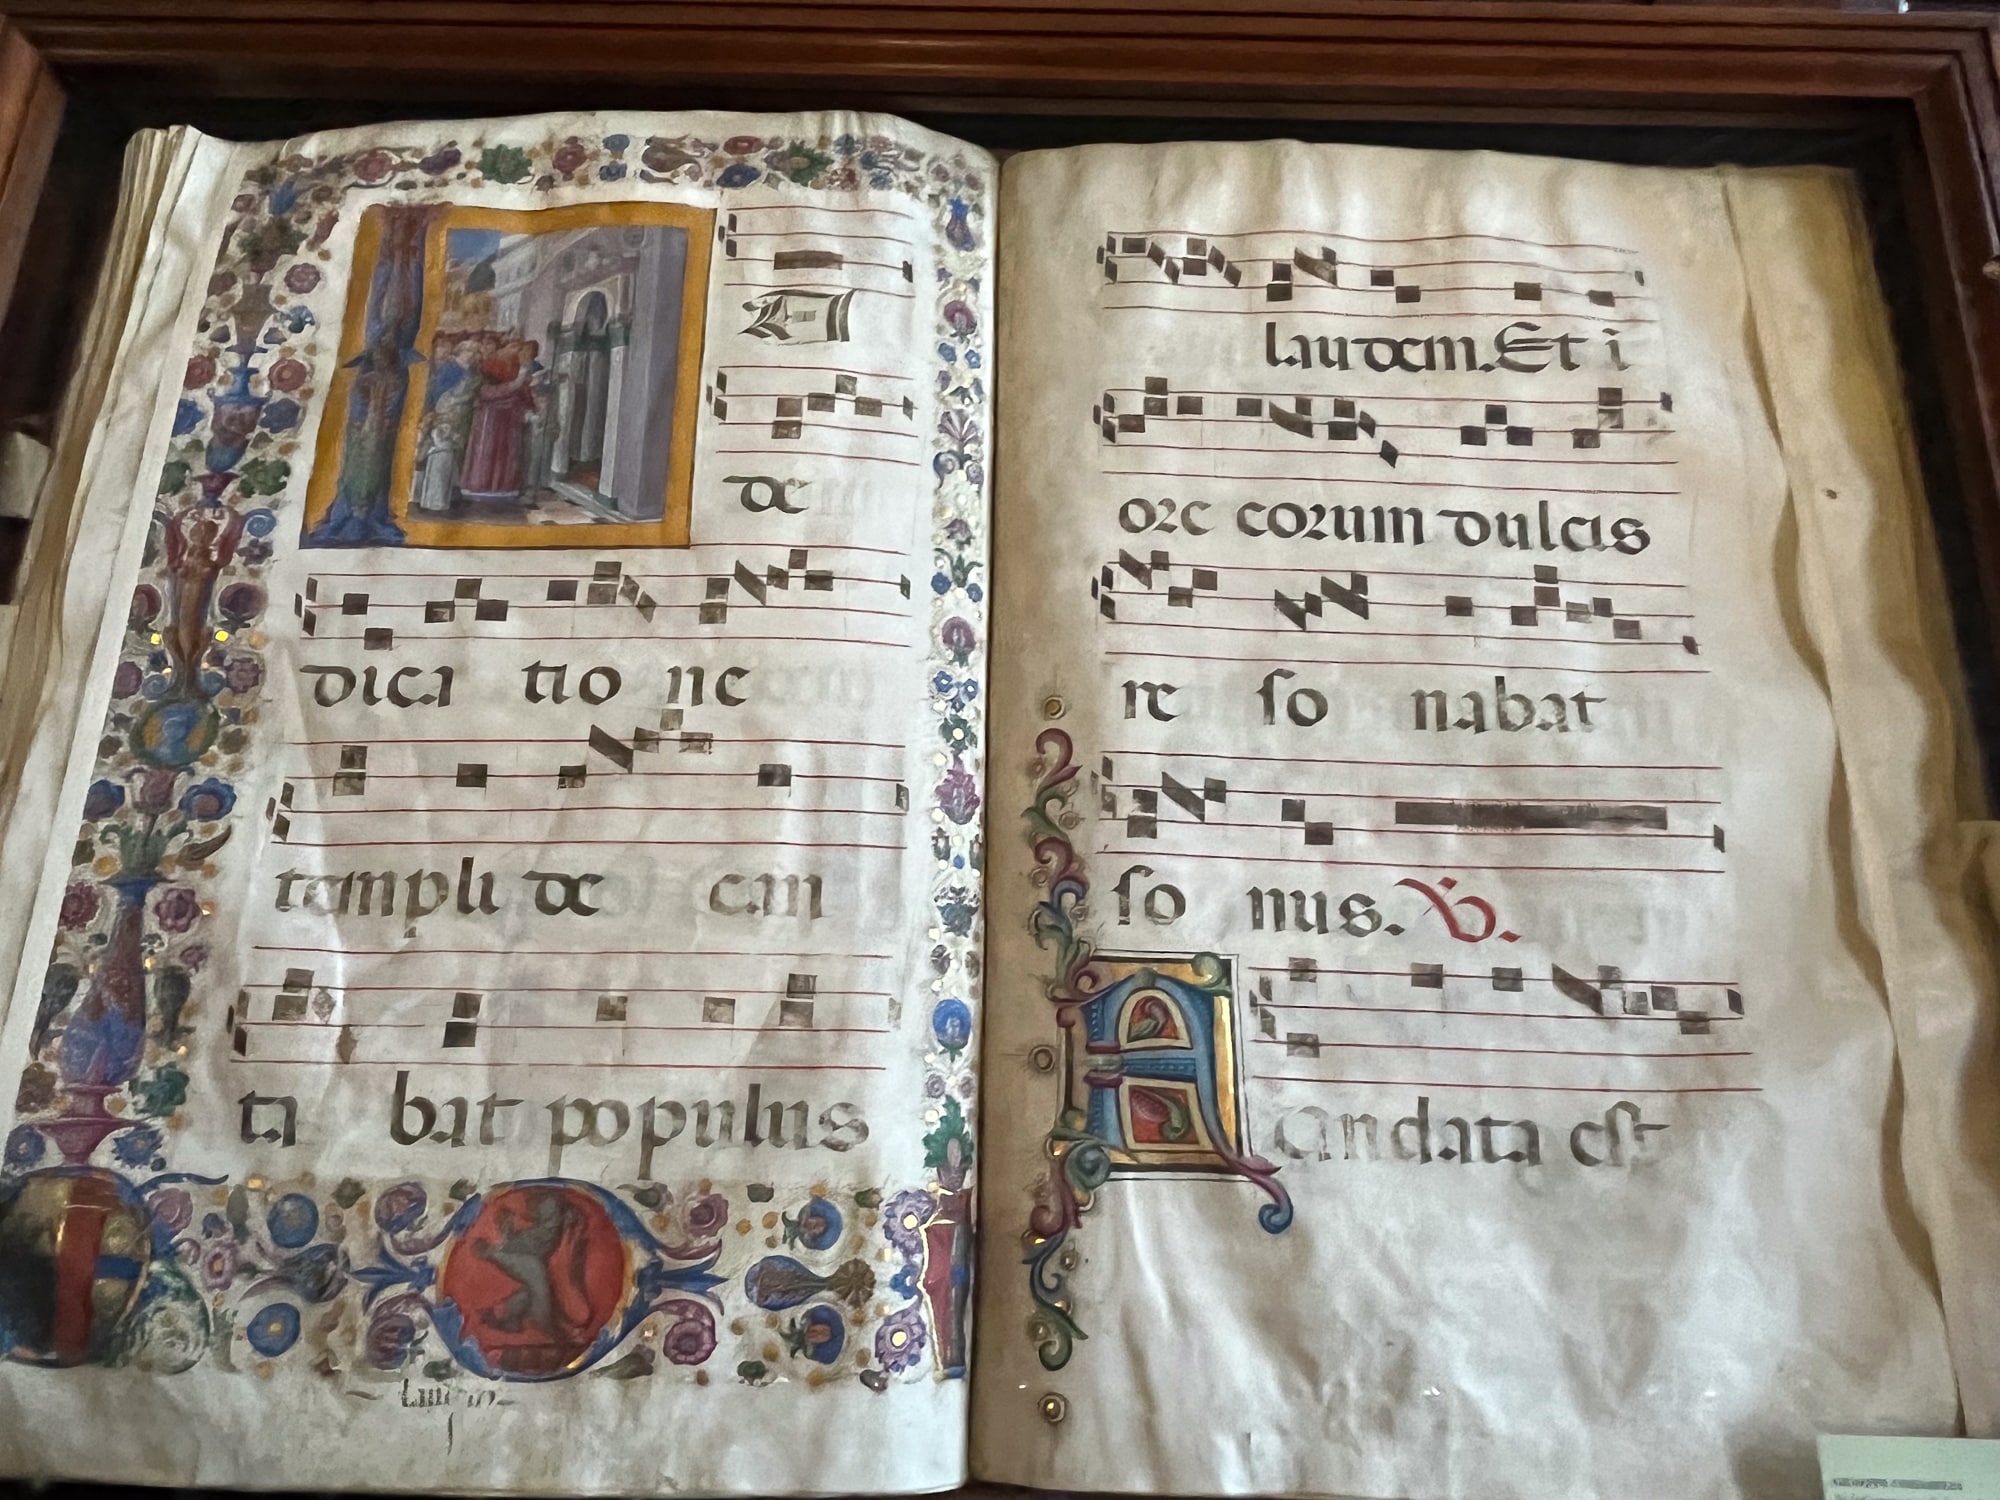 IN
de
dica tio ne
templi de can
ta bat populus
laudem. Et i
ore eorum dulcis
re so nabat
so nus. V.
Fundata est